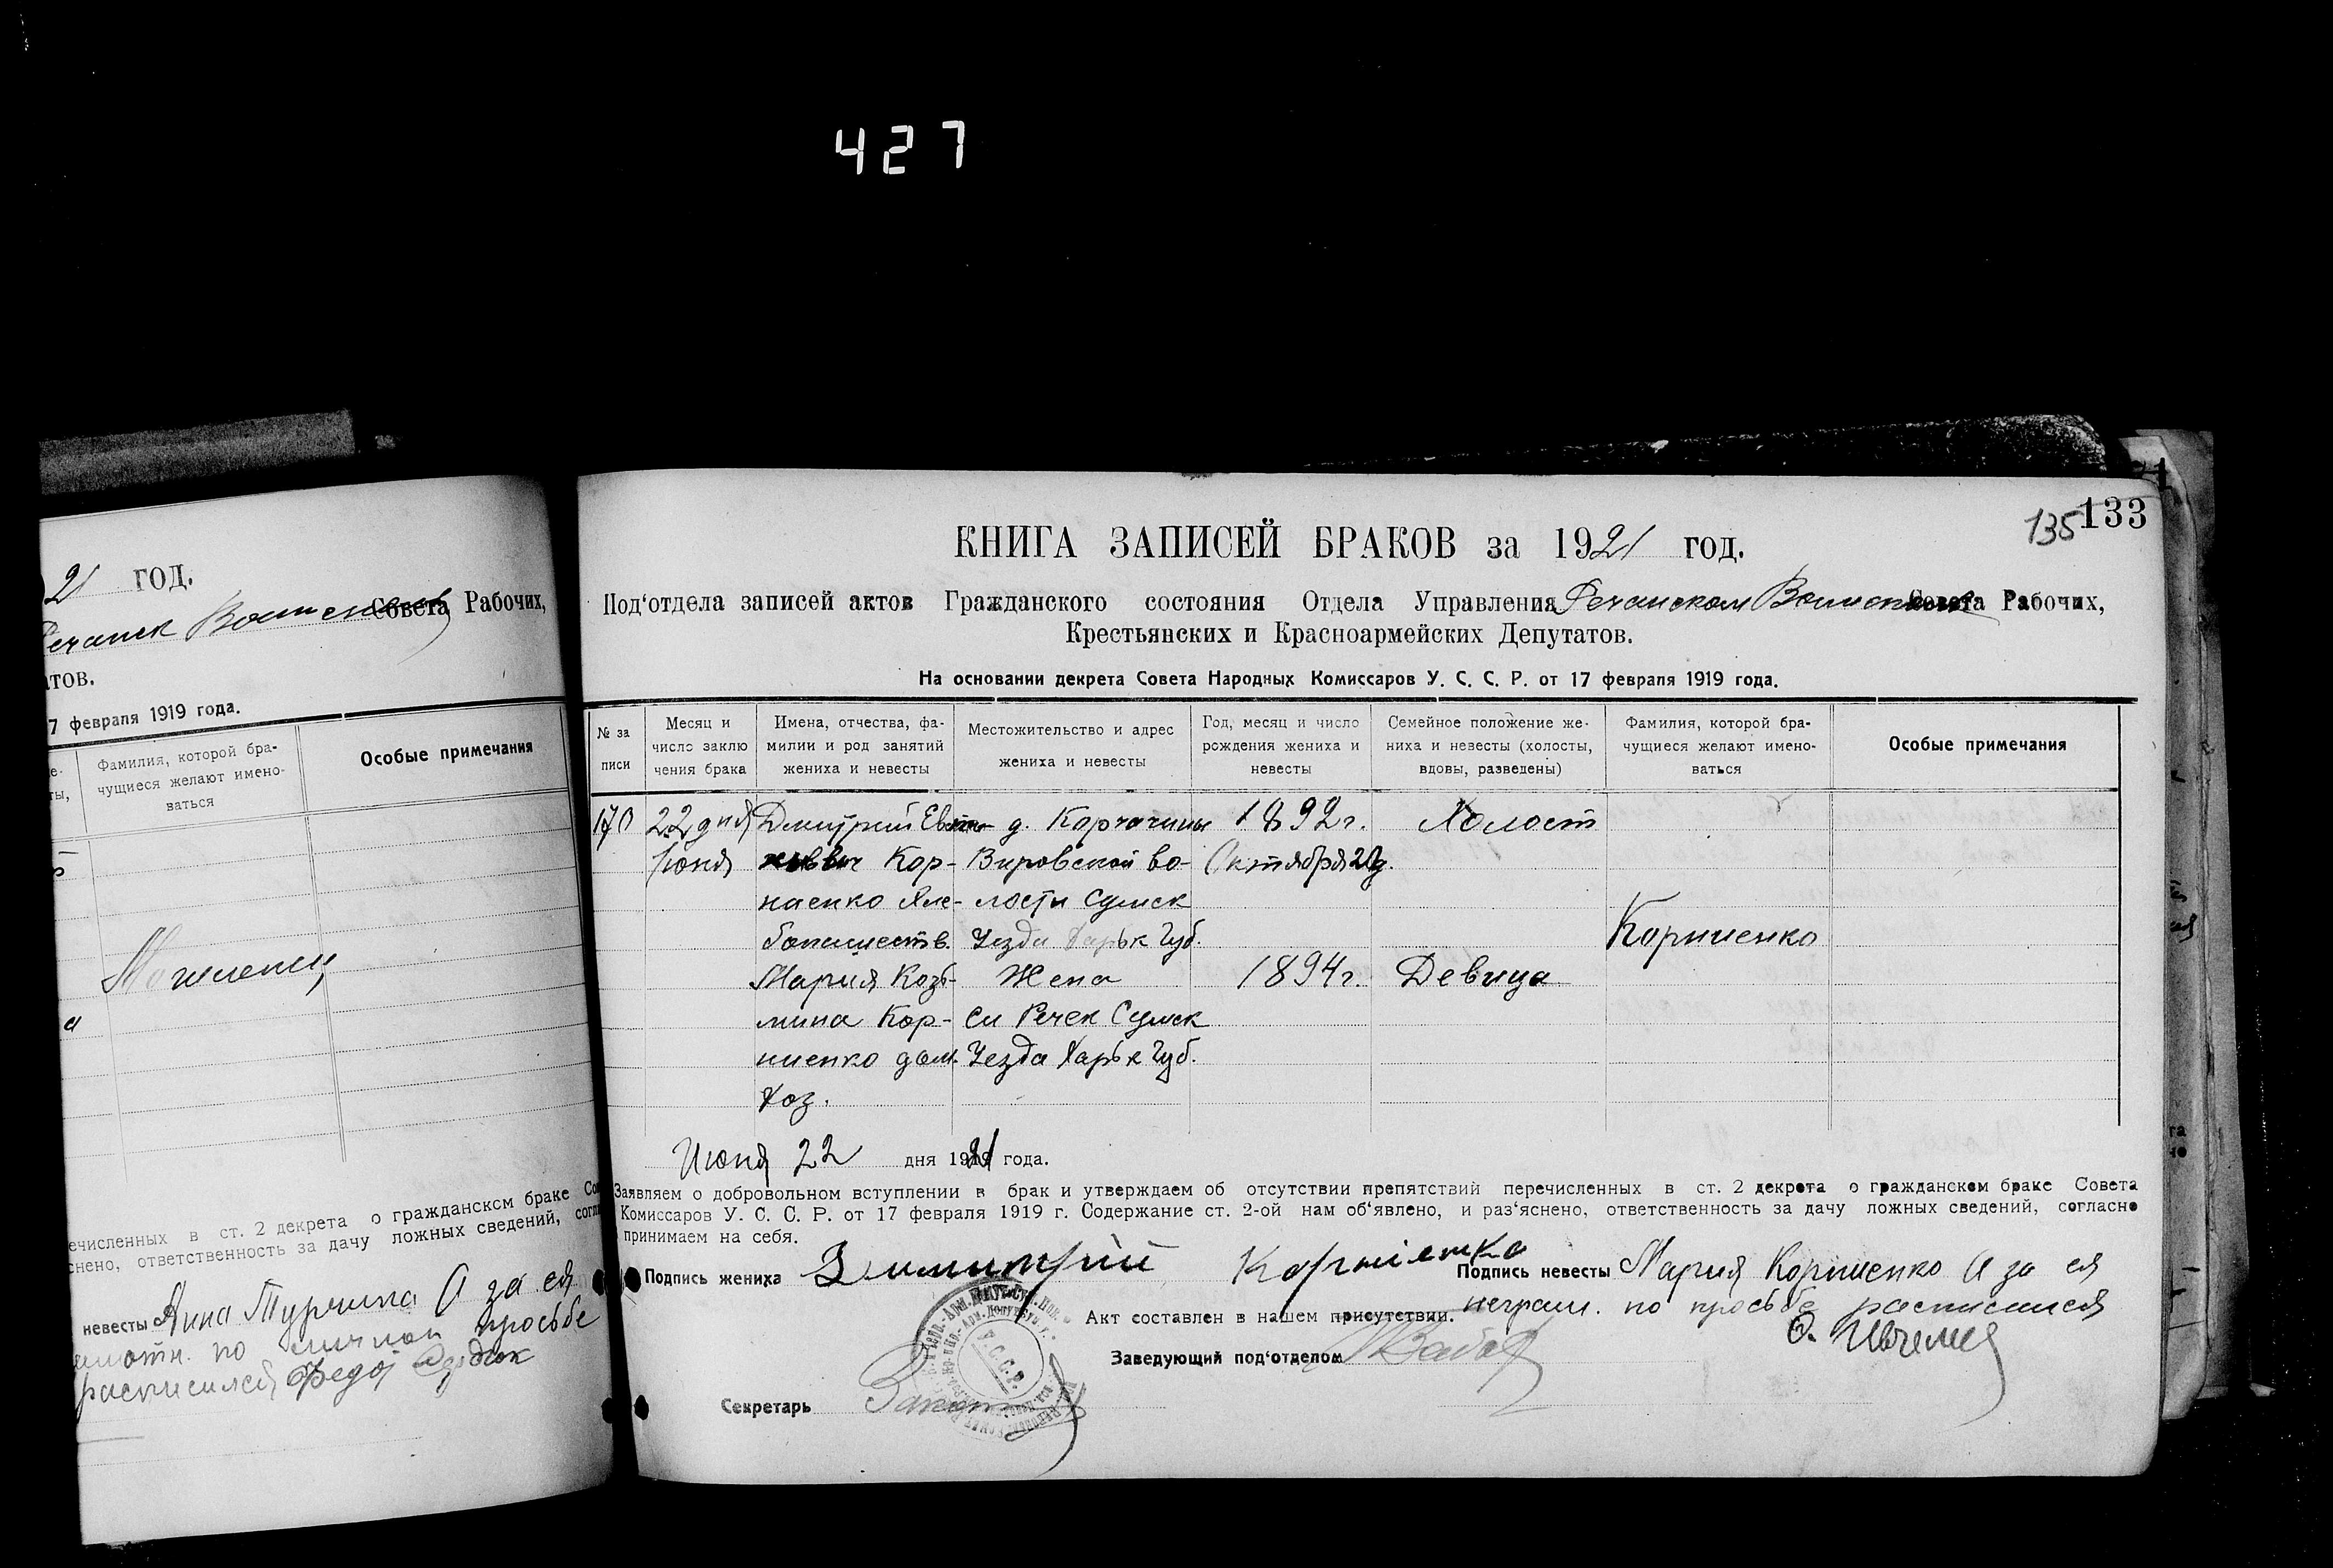 427
21 год.
Совета Рабочих,
тов.
7 февраля 1919 года.
Фамилия, которой бра-
чущиеся желают имено-
ваться
Особые примечания
ечисленных в ст. 2 декрета о гражданском браке
снено, ответственность за дачу ложных сведений,
невесты Анна Турчина А за ея
по личной просьбе
росписился Федор
133
135
КНИГА ЗАПИСЕЙ БРАКОВ за 1921 год.
Под'отдела записей актов Гражданского состояния Отдела Управления Речанском Совета Рабочих,
Крестьянских и Красноармейских Депутатов.
На основании декрета Совета Народных Комиссаров У. С. С. Р. от 17 февраля 1919 года.
№ за
писи
Месяц и
число заклю
чения брака
Имена, отчества, фа-
милии и род занятий
жениха и невесты
Местожительство и адрес
жениха и невесты
Год, месяц и число
рождения жениха и
невесты
Семейное положение же-
ниха и невесты (холосты,
вдовы, разведены)
Фамилия, которой бра-
чущиеся желают имено-
ваться
Особые примечания
170
22 дня
Июня
Дмитрий
Кор-
ниенко Хле-
бопашеств.
д.
Вировской во-
лости Сумск
Уезда Харьк Губ.
1892 г.
Октября
Холост
Корниенко
Мария Козь-
мина Кор-
ниенко дом.
Хоз.
Жена
Сл Речек Сумск
Уезда Харьк Губ.
1894 г.
Девица
Июня 22 дня 1921 года.
Заявляем о добровольном вступлении в брак и утверждаем об отсутствии препятствий перечисленных в ст. 2 декрета о гражданском браке Совета
Комиссаров У. С. С. Р. от 17 февраля 1919 г. Содержание ст. 2-ой нам об'явлено, и раз'яснено, ответственность за дачу ложных сведений, согласно
принимаем на себя.
Подпись жениха Димитрий Корниенко
Подпись невесты Мария Корниенко А за ея
неграм. по просьбе расписился
Акт составлен в нашем присутствии.
Заведующий под'отделом
Секретарь